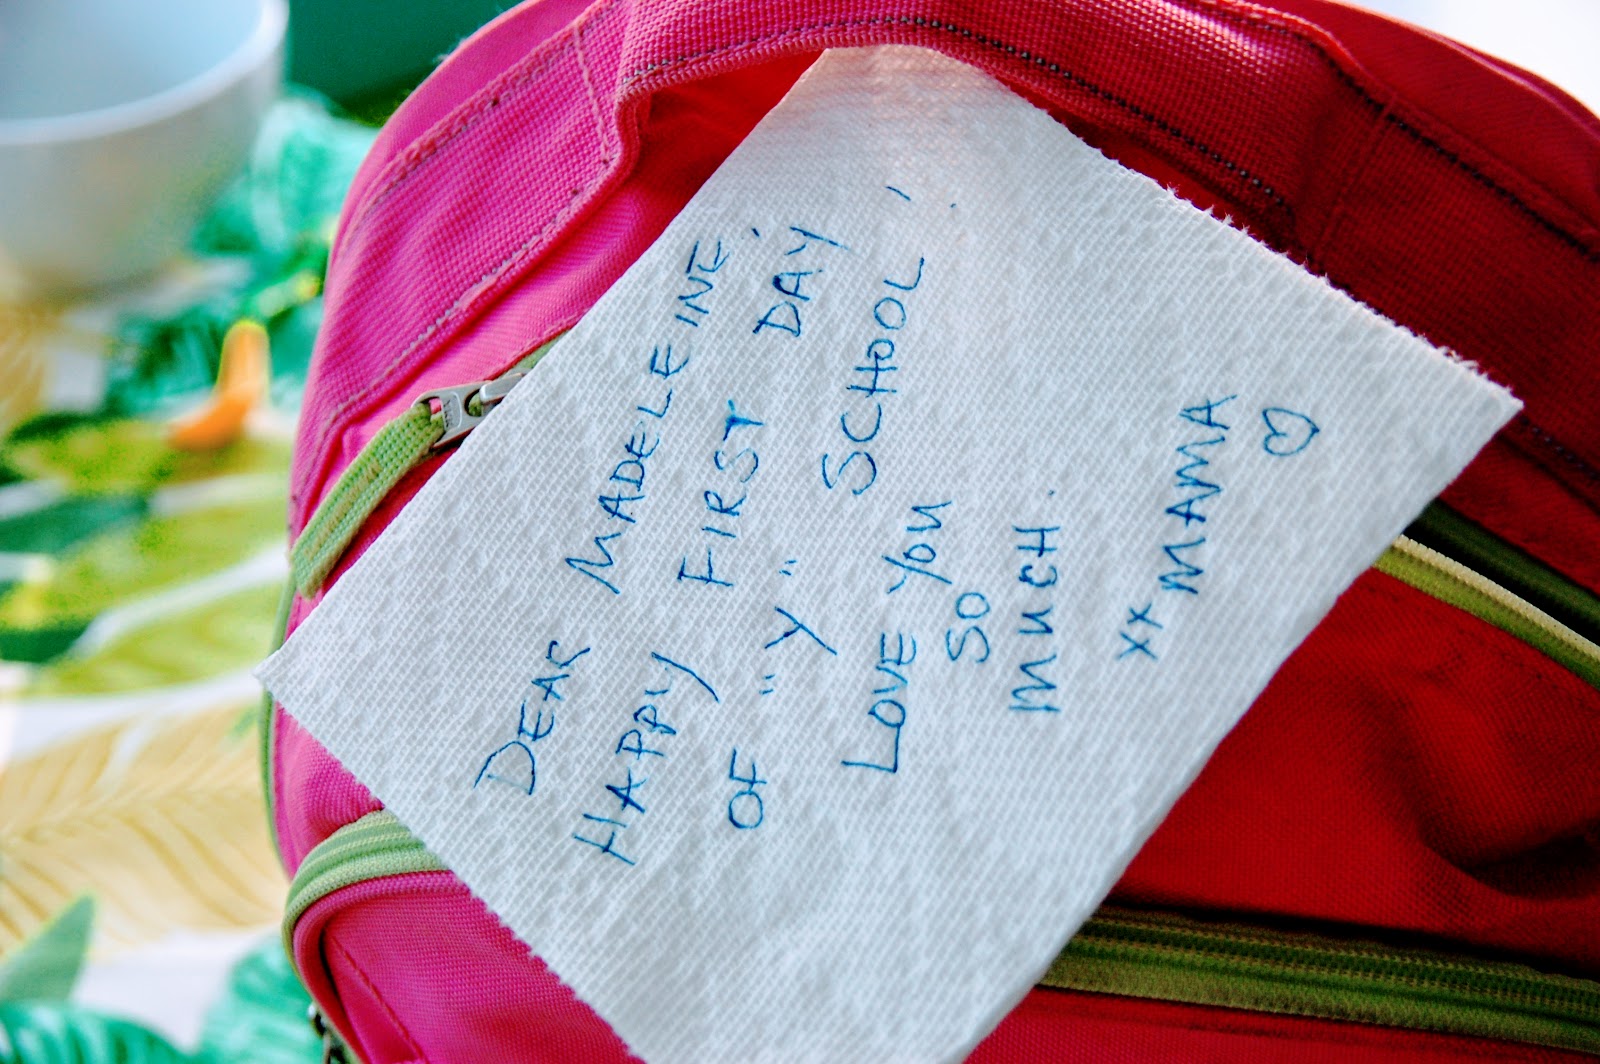 DEAR MADELEINE,
HAPPY FIRST DAY
OF "Y" SCHOOL!
LOVE YOU
SO
MUCH.
xx MAMA
♡